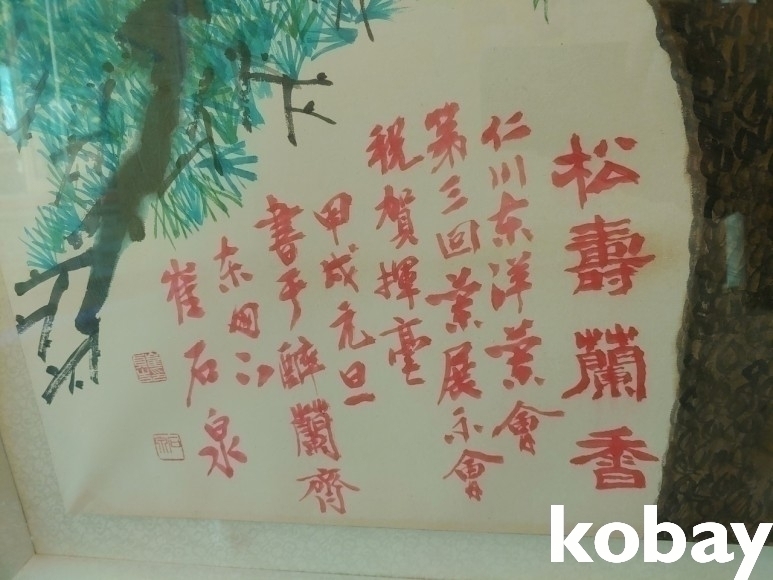 松壽蘭香
仁川东洋葉會
第三回葉展示會
祝賀揮毫
甲戌元旦
書于醉蘭齊
东
崔石泉
kobay